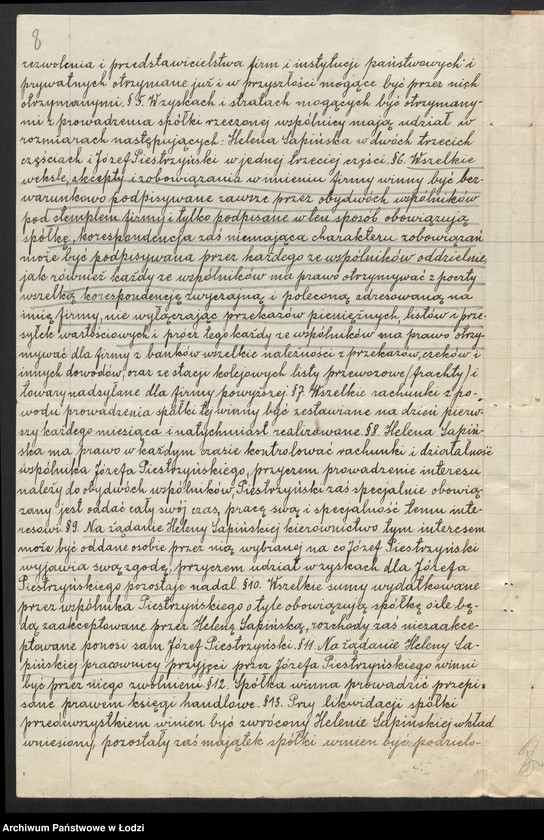 8
zezwolenia i przedstawicielstwa firm i instytucji państwowych i
prywatnych otrzymane już i w przyszłości mogące być przez nich
otrzymanymi. § 5. W zyskach i stratach mogących być otrzymany-
mi z prowadzenia spółki rzeczonej wspólnicy mają udział w
rozmiarach następujących: Helena Łapińska w dwóch trzecich
częściach i Józef Piestrzyński w jednej trzeciej części. §6. Wszelkie
weksle, akcepty i zobowiązania w imieniu firmy winny być bez-
warunkowo podpisywane zawsze przez obydwóch wspólników
pod stemplem firmy i tylko podpisane w ten sposób obowiązują
spółkę, korespondencja zaś niemająca charakteru zobowiązań
może być podpisywana przez każdego ze wspólników oddzielnie,
jak również każdy ze wspólników ma prawo otrzymywać z poczty
wszelką korespondencję zwyczajną i poleconą adresowaną na
imię firmy, nie wyłączając przekazów pieniężnych, listów i prze-
syłek wartościowych i prócz tego każdy ze wspólników ma prawo otrzy-
mywać dla firmy z banków wszelkie należności z przekazów, czeków i
innych dowodów, oraz ze stacji kolejowych listy przewozowe (frachty) i
towary nadsyłane dla firmy powyższej. §7. Wszelkie rachunki z po-
wodu prowadzenia spółki tej winny być zestawiane na dzień pierw-
szy każdego miesiąca i natychmiast realizowane. §8. Helena Łapiń-
ska ma prawo w każdym czasie kontrolować rachunki i działalność
wspólnika Józefa Piestrzyńskiego, przyczem prowadzenie interesu
należy do obydwóch wspólników, Piestrzyński zaś specjalnie obowią-
zany jest oddać cały swój czas, pracę swą i specjalność temu inte-
resowi. §9. Na żądanie Heleny Łapińskiej kierownictwo tym interesem
może być oddane osobie przez nią wybranej na co Józef Piestrzyński
wyjawia swą zgodę, przyczem udział w zyskach dla Józefa
Piestrzyńskiego pozostaje nadal. §10. Wszelkie sumy wydatkowane
przez wspólnika Piestrzyńskiego o tyle obowiązują spółkę o ile bę-
dą zaakceptowane przez Helenę Łapińską, rozchody zaś niezaakce-
ptowane ponosi sam Józef Piestrzyński. §11. Na żądanie Heleny Ła-
pińskiej pracownicy przyjęci przez Józefa Piestrzyńskiego winni
być przez niego zwolnieni. §12. Spółka winna prowadzić przepi-
sane prawem księgi handlowe. §13. Przy likwidacji spółki
przedewszystkiem winien być zwrócony Helenie Łapińskiej wkład
wniesiony, pozostały zaś majątek spółki winien być podzielo-
Archiwum Państwowe w Łodzi
Archiwum Państwowe w Łodzi